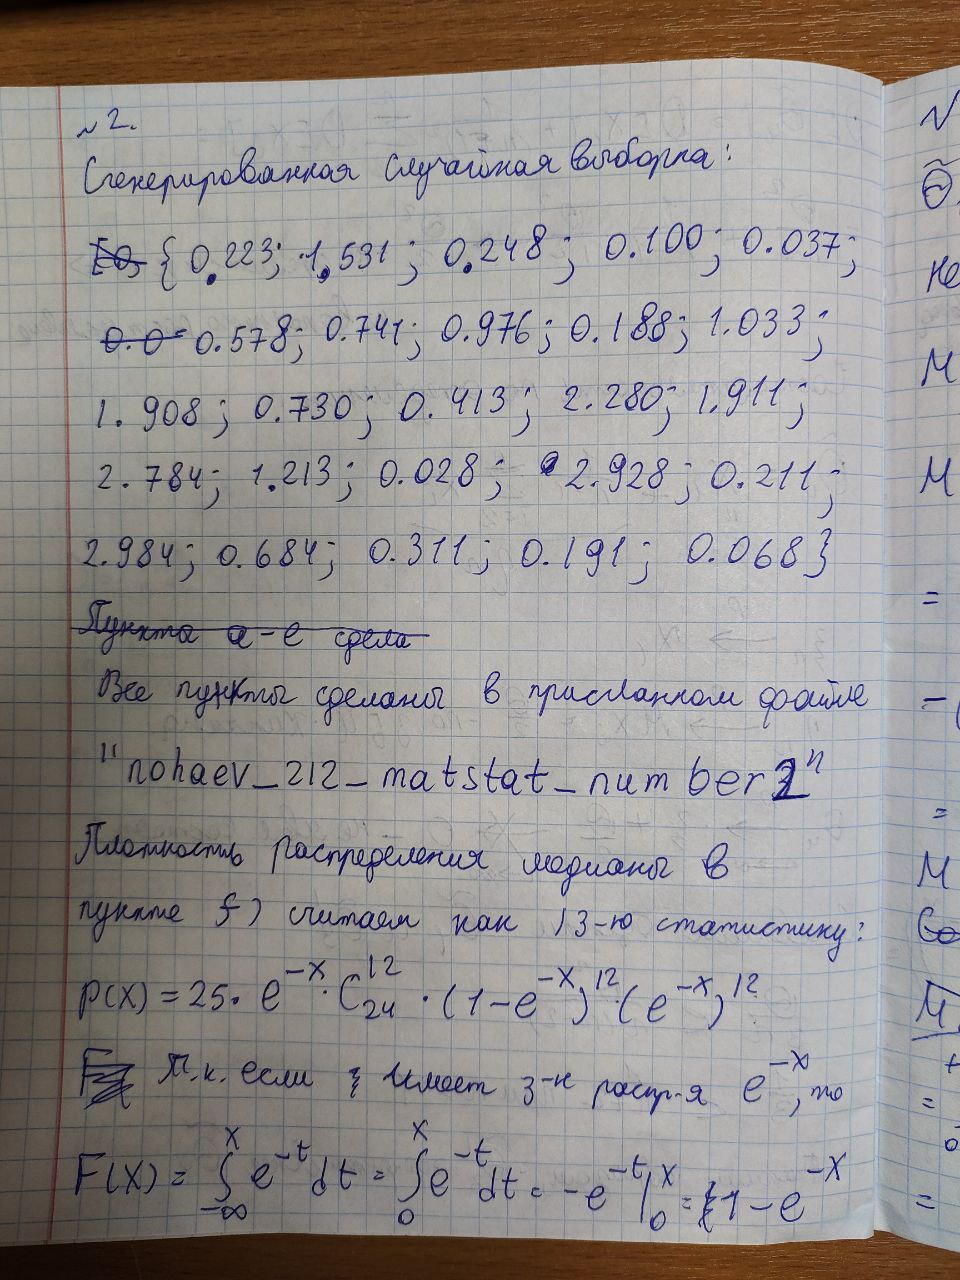 №2.
Сгенерированная случайная выборка:
{0.223; 1.531; 0.248; 0.100; 0.037;
0.578; 0.741; 0.976; 0.188; 1.033;
1.908; 0.730; 0.413; 2.280; 1.911;
2.784; 1.213; 0.028; 2.928; 0.211;
2.984; 0.684; 0.311; 0.191; 0.068}
Пункты а-е сдела
Все пункты сделаны в присланном файле
"nohaev_212_matstat_number2"
Плотность распределения медианы в
пункте f) считаем как 13-ю статистику:
p(x) = 25 · e^{-x} · C_{24}^{12} · (1-e^{-x})^{12} · (e^{-x})^{12}
Т.к. если ξ имеет з-н распр-я e^{-x}, то
F(x) = ∫_{-∞}^{x} e^{-t} dt = ∫_{0}^{x} e^{-t} dt = -e^{-t} |_{0}^{x} = 1-e^{-x}